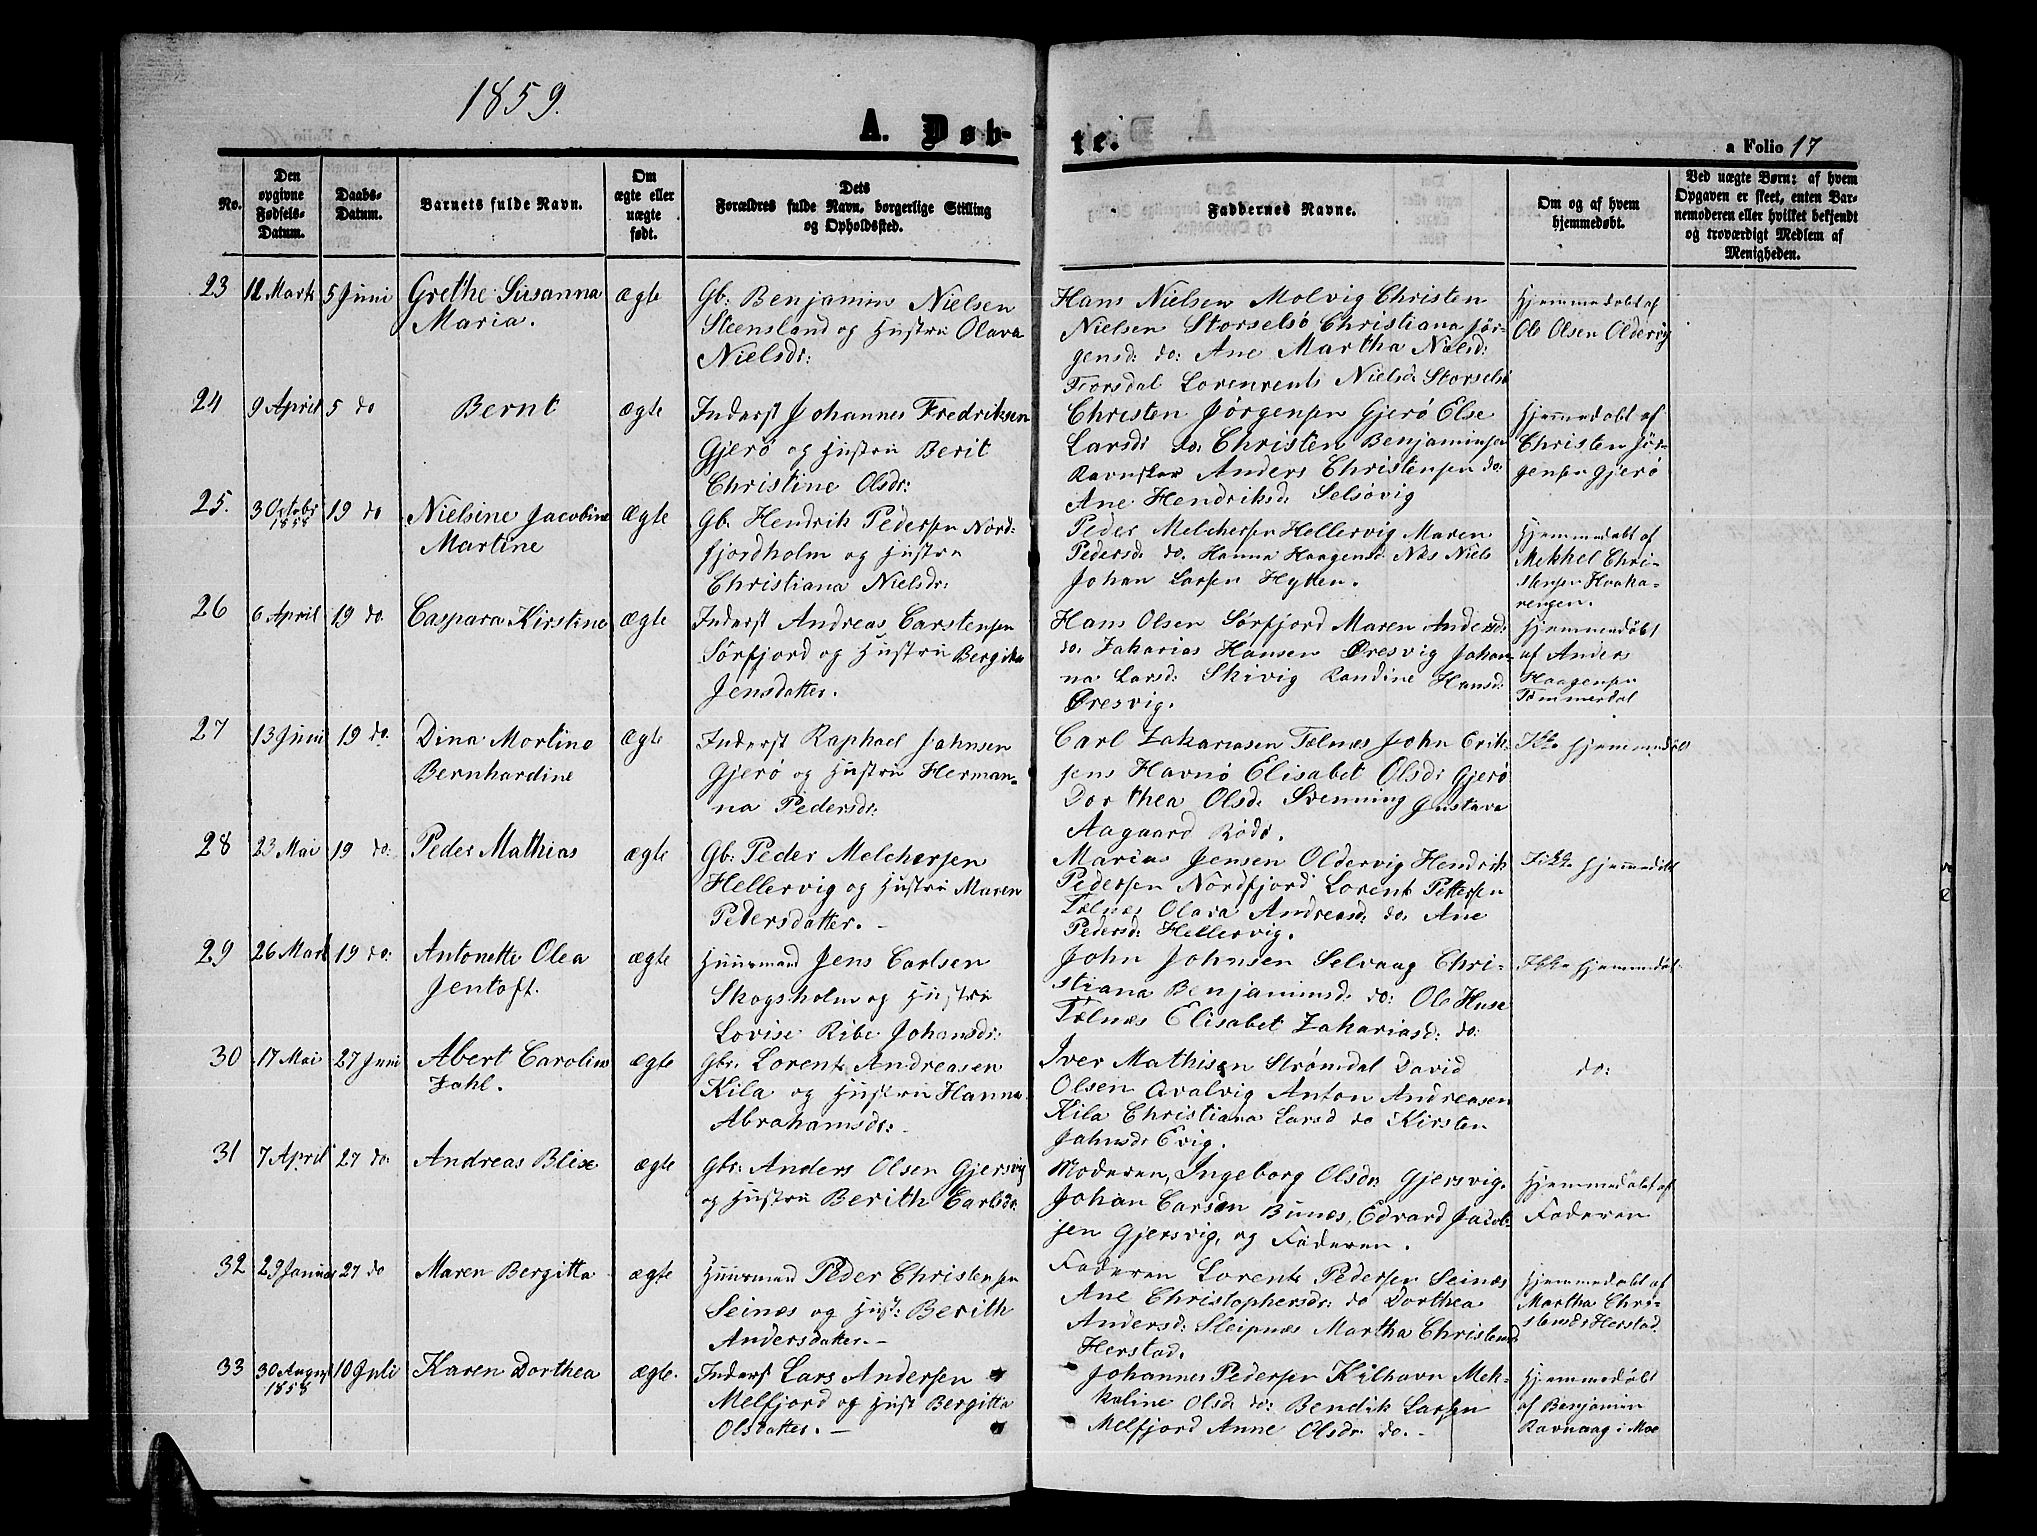 1859.
A. Døb-
te.
a Folio 17
No.
Den
opgivne
Fødsels-
Datum.
Daabs-
Datum.
Barnets fulde Navn.
Om
ægte eller
uægte
født.
Dets
Forældres fulde Navn, borgerlige Stilling
og Opholdssted.
Faddernes Navne.
Om og af hvem
hjemmedøbt.
Ved uægte Børn: af hvem
Opgaven er skeet, enten Bar-
nemoderen eller hvilket bekjendt
og troværdigt Medlem af
Menigheden.
23 12 Marts 5 Juni
Grethe Susanna
Maria.
ægte
Gb: Benjamin Nielsen
Steensland og Hustru Olava
Nielsdr:
Hans Nielsen Molvig Christen
Nielsen Storselsö Christiana Jör-
gensd: do: Ane Martha Nielsd:
Forsdal Lorentz Nielsd: Storselsö
Hjemmedöbt af
Ole Olsen Oldervig
24 9 April 5 do
Bernt
ægte
Inderst Johannes Fredriksen
Gjerö og Hustru Berit
Christine Olsdr:
Christen Jörgensen Gjerö Else
Larsdr do. Christen Benjaminsen
Anders Christensen do:
Ane Hendriksd: Selsövig
Hjemmedöbt af
Christen Jör-
gensen Gjerö
25. 3 Octobr 1858 19 do
Nielsine Jacobine
Martine
Ægte
Gb. Hendrik Pedersen Nord-
fjordholm og Hustru
Christiana Nielsdr:
Peder Melchersen Hellervig Maren
Pedersd: do. Hanna Haagensd: Næs Niels
Johan Larsen Hytten.
Hjemmedöbt af
Mekkel Chri-
stensen
26 6 April 19 do.
Caspara Kirstine
Ægte
Inderst Andreas Carstensen
Sörfjord og Hustru Bergitha
Jensdatter.
Hans Olsen Sörfjord Maren Andersd:
do. Zakarias Hansen Öresvig Johan-
na Larsd: Skivig Randine Hansd:
Öresvig.
Hjemmedöbt
af Anders
Haagensen
Tömmerdal
27 13 Juni 19 do.
Dina Martine
Bernhardine
Ægte
Inderst Raphael Johnsen
Gjerö og Hustru Herman-
na Pedersdr:
Carl Zakariasen Tælnes John Erik-
sens Havnö Elisabet Olsdr Gjerö
Dorthea Olsd. Svenning Gustava
Aagaard Rödö.
Ikke Hjemmedöbt
28 23 Mai 19 do:
Peder Mathias
ægte
Gb: Peder Melchersen
Hellervig og Hustru Maren
Pedersdatter. -
Marius Jensen Oldervig Hendrik
Pedersen Nordfjord Lorents Pettersen
Tælnæs Olava Andreasd: do. Ane
Pedersd: Hellervig.
Ikke Hjemmedöbt
29 26 Mart 19 do:
Antonette Olea
Jentoft.
ægte
Huusmand Jens Carlsen
Skogsholm og Hustru
Lovise Ribe Johansdr:
John Johnsen Selvaag Chri-
stiana Benjaminsd: do: Ole Huse
Tælnæs Elisabet Zakariasd: do:
Ikke Hjemmedöbt
30 17 Mai 27 Juni
Abert Carolius
Zahl.
ægte
Gbr. Lorents Andreasen
Kila og Hustru Hanna
Abrahamsdr:
Iver Mathisen Strömdal David
Olsen Qvalvig Anton Andreasen
Kila Christiana Larsd do Kirsten
Jahnsdr Evig.
do:
31 7 April 27 do.
Andreas Blix
ægte
Gbr: Anders Olsen Gjersvig
og Hustru Berith Carlsdr:
Moderen, Ingeborg Olsdr Gjersvig.
Johan Carsen Bunæs, Edvard Jacob-
sen Gjersvig, og Faderen.
Hjemmedöbt af
Faderen
32 29 Januar 27 do
Maren Bergitta
ægte
Huusmand Peder Christensen
Seinæs og Hust: Berith
Andersdatter. -
Faderen Lorents Pedersen Seinæs
Ane Christophersdr: do Dorthea
Andersd: Sleipnæs Martha Christensd
Herstad.
Hjemmedöbt af
Martha Chri-
stensdr Herstad.
33 30 August 1858 10 Juli
Karen Dorthea
ægte.
Inderst Lars Andersen
Melfjord og Hust Bergitta
Olsdatter. -
Johannes Pedersen Kilhavn Mek-
kaline Olsd do: Bendik Larsen
Melfjord Anne Olsdr do. -
Hjemmedöbt
af Benjamin
Ravnaag i Moe